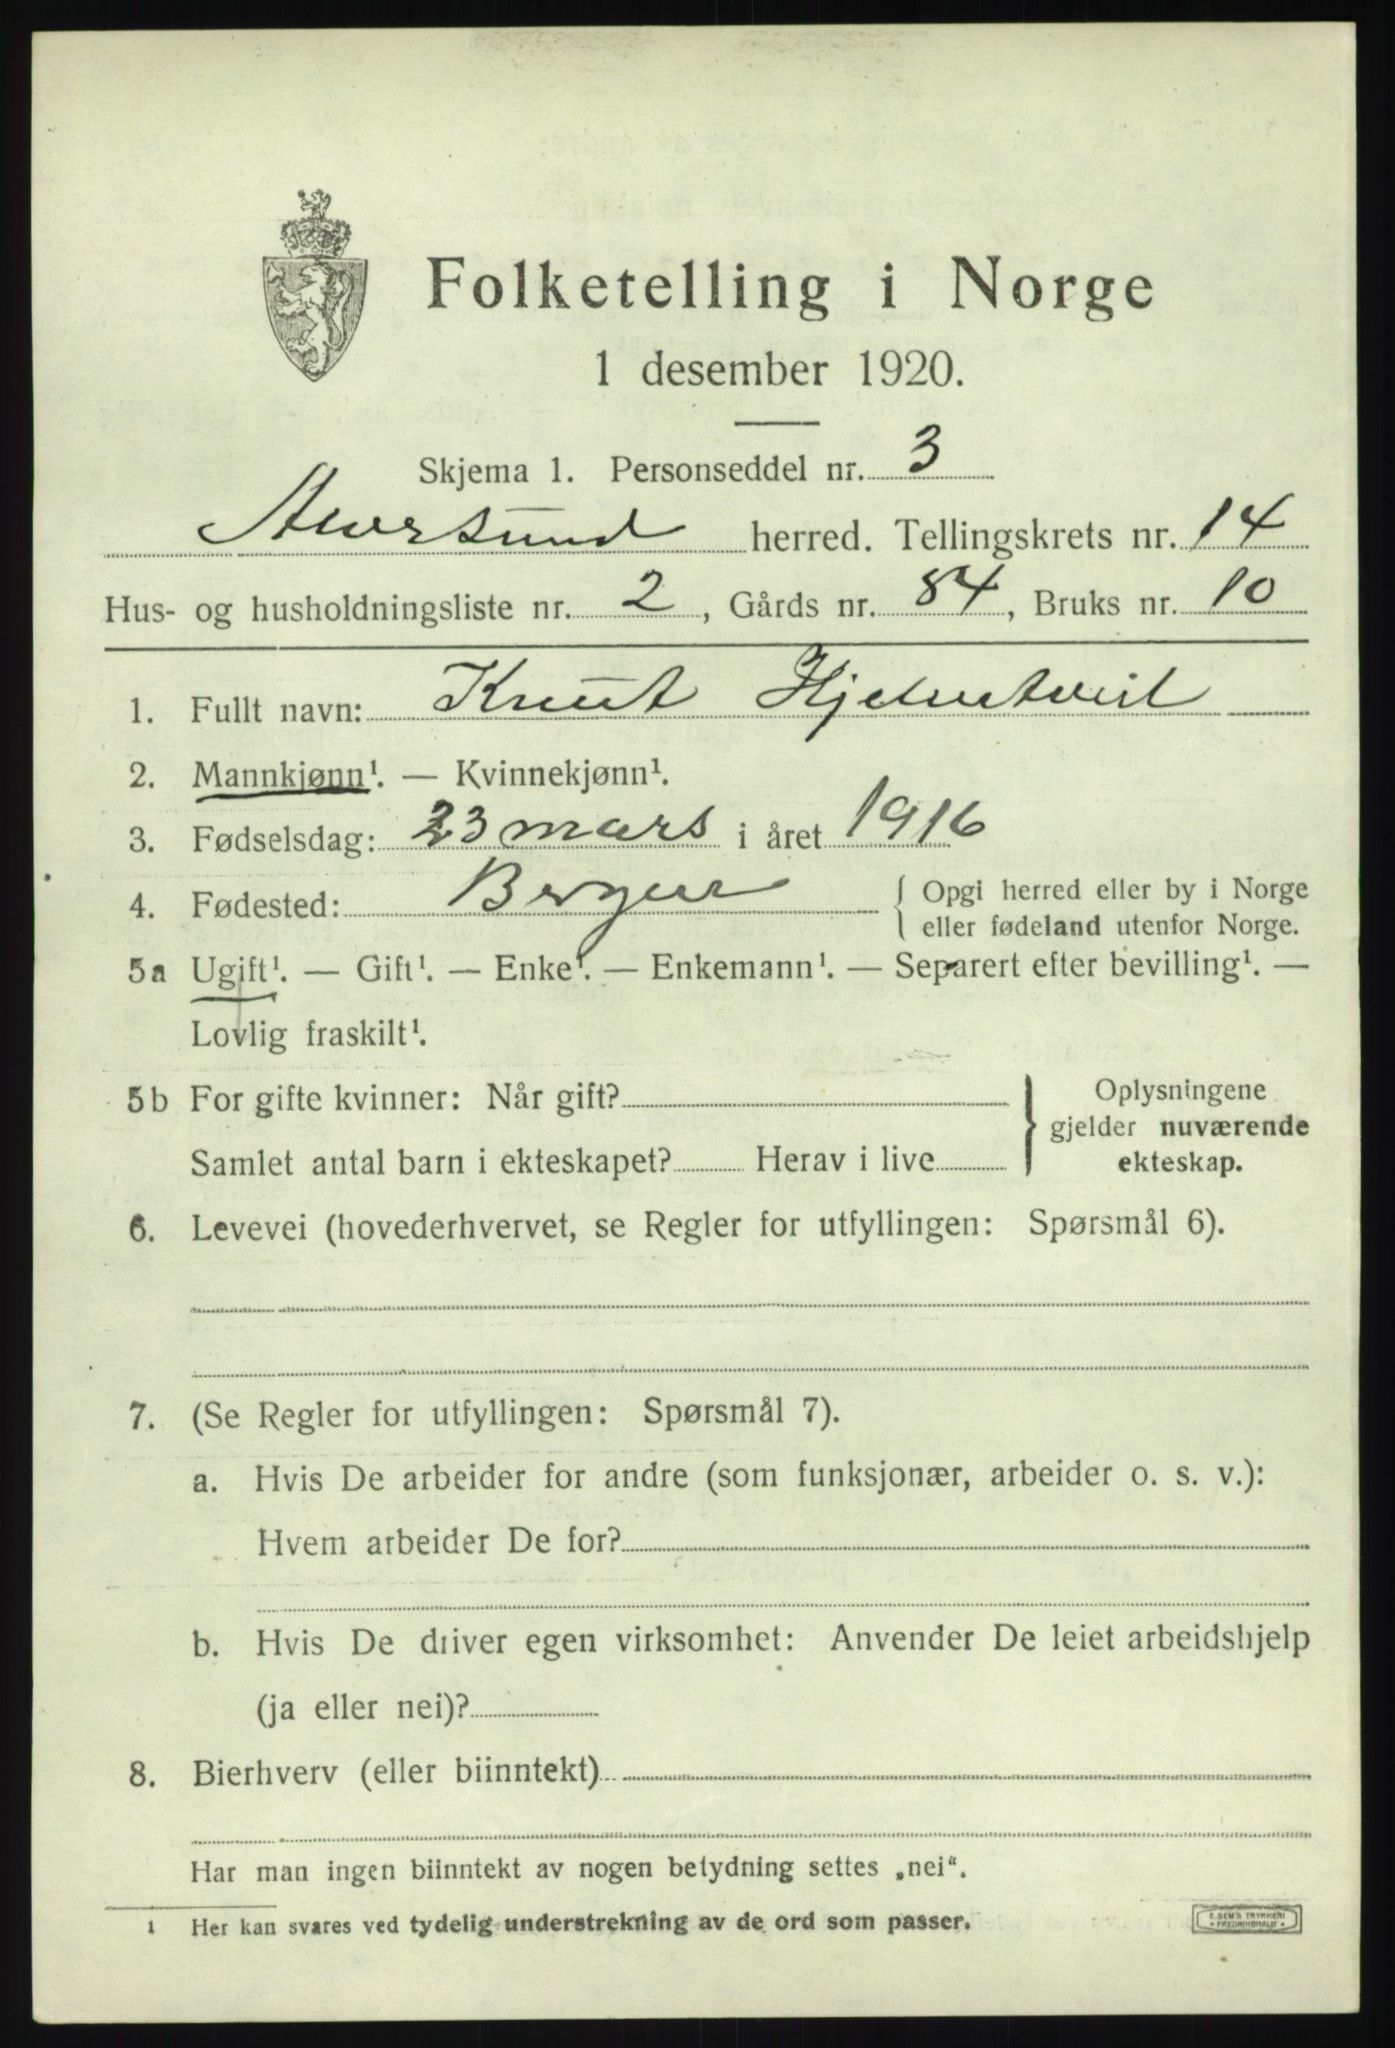 Folketelling i Norge
1 desember 1920.
Skjema 1. Personseddel nr. 3
Alversund herred. Tellingskrets nr. 14
Hus- og husholdningsliste nr. 2, Gårds nr. 84, Bruks nr. 10
1. Fullt navn: Knut Hjelmtveit
2. Mannkjønn¹. — Kvinnekjønn¹.
3. Fødselsdag: 23 mars i året 1916
4. Fødested: Bergen { Opgi herred eller by i Norge
eller fødeland utenfor Norge.
5a Ugift¹. — Gift¹. — Enke¹. — Enkemann¹. — Separert efter bevilling¹. —
Lovlig fraskilt¹.
5b For gifte kvinner: Når gift? } Oplysningene
gjelder nuværende
Samlet antal barn i ekteskapet? Herav i live ekteskap.
6. Levevei (hovederhvervet, se Regler for utfyllingen: Spørsmål 6).
7. (Se Regler for utfyllingen: Spørsmål 7).
a. Hvis De arbeider for andre (som funksjonær, arbeider o. s. v.):
Hvem arbeider De for?
b. Hvis De driver egen virksomhet: Anvender De leiet arbeidshjelp
(ja eller nei)?
8. Bierhverv (eller biinntekt)
Har man ingen biinntekt av nogen betydning settes „nei“.
¹ Her kan svares ved tydelig understrekning av de ord som passer.
E. SEM'S TRYKKERI
• FREDRIKSHALD •